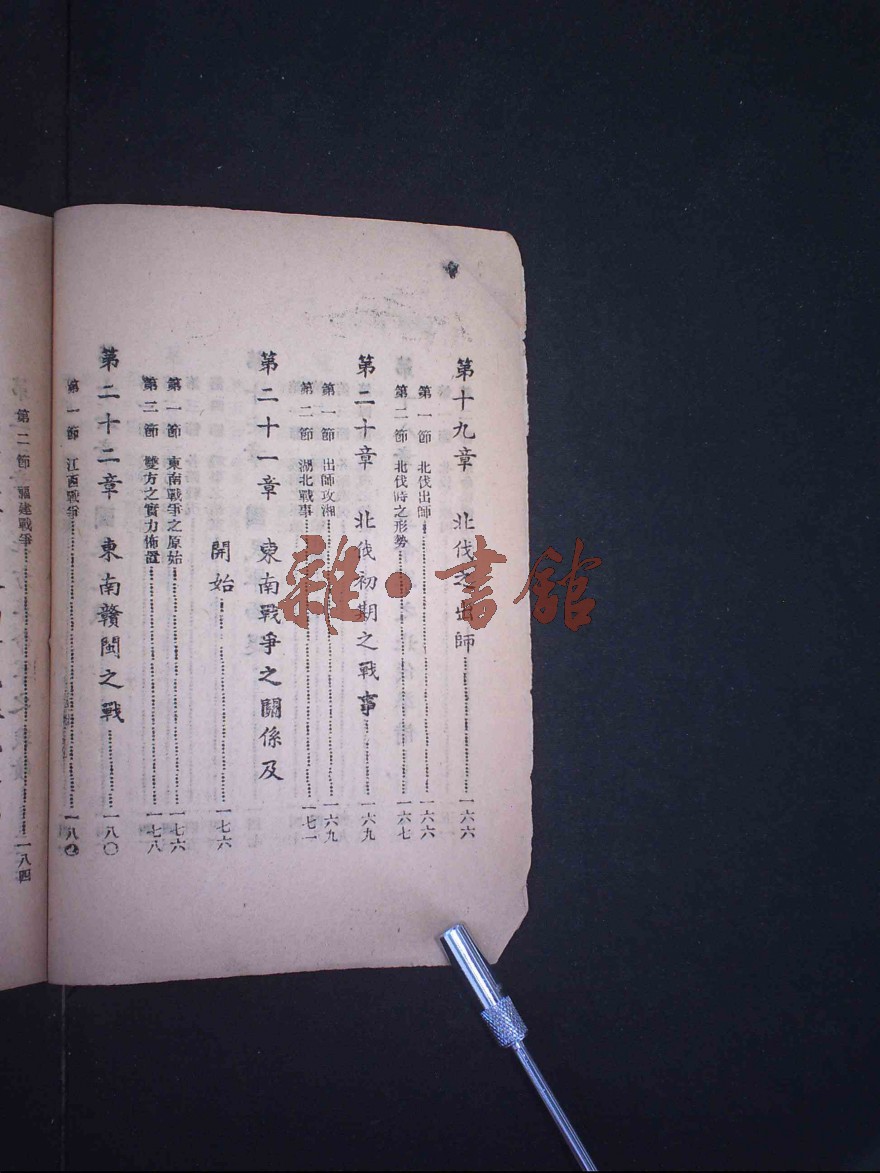 第十九章 北伐之出師……一六六
第一節 北伐出師……一六六
第二節 北伐時之形勢……一六七
第二十章 北伐初期之戰事……一六九
第一節 出師攻湘……一六九
第二節 湖北戰事……一七一
第二十一章 東南戰爭之關係及
開始……一七六
第一節 東南戰爭之原始……一七六
第二節 雙方之實力佈置……一七八
第二十二章 東南贛閩之戰……一八〇
第一節 江西戰爭……一八〇
第二節 福建戰爭……一八四
雜·書館